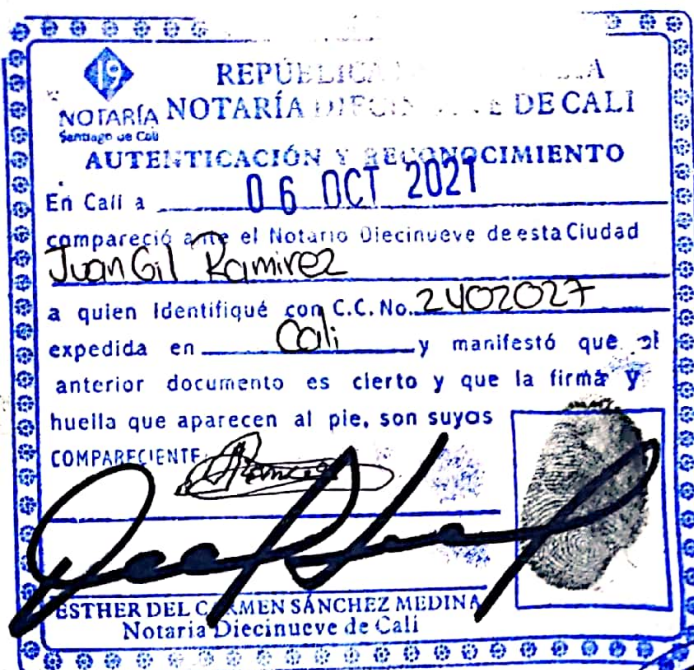 19
NOTARÍA
Santiago de Cali
REPÚBLICA
NOTARÍA DIECINUEVE DE CALI
AUTENTICACIÓN Y RECONOCIMIENTO
En Cali a 06 OCT 2021
compareció ante el Notario Diecinueve de esta Ciudad
Juan Gil Ramirez
a quien identifiqué con C.C. No. 2402027
expedida en Cali y manifestó que el
anterior documento es cierto y que la firma y
huella que aparecen al pie, son suyos
COMPARECIENTE
ESTHER DEL CARMEN SÁNCHEZ MEDINA
Notaria Diecinueve de Cali